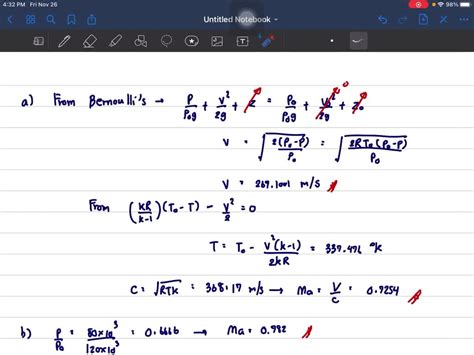 4:32 PM Fri Nov 26
98%
Untitled Notebook
a) From Bernoulli's → P/ρ₀g + V²/2g + z = P₀/ρ₀g + V₀²/2g + z₀ 0
V = √(2(P₀-P)/ρ₀) = √(2RT₀(P₀-P)/P₀)
V = 267.1001 m/s
From (kR/k-1)(T₀-T) - V²/2 = 0
T = T₀ - V²(k-1)/2kR = 337.476 °k
C = √RTk = 368.17 m/s → Ma = V/C = 0.7254
b) P/P₀ = 80×10³/120×10³ = 0.6666 → Ma = 0.782